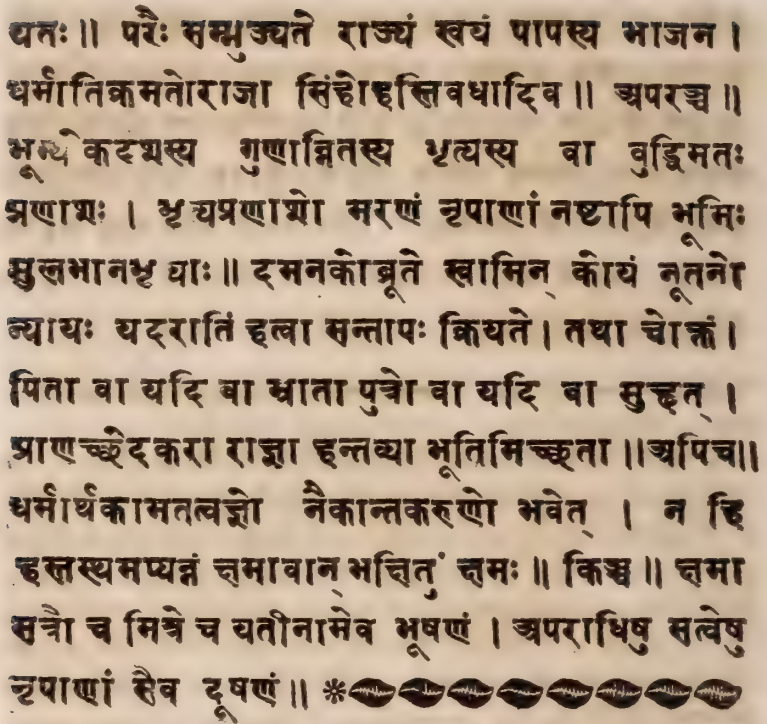 यतः॥ परैः सम्भुज्यते राज्यं स्वयं पापस्य भाजन।
धर्मातिक्रमतोराजा सिंहोहस्तिवधादिव॥ अपरञ्च॥
भूम्येकदेशस्य गुणान्वितस्य भृत्यस्य वा वुद्धिमतः
प्रणाशः। भृत्यप्रणाशो मरणं नृपाणां नष्टापि भूमिः
सुलभानभृत्याः॥ दमनकोब्रूते स्वामिन् कोयं नूतनो
न्यायः यदरातिं हत्वा सन्तापः क्रियते। तथा चोक्तं।
पिता वा यदि वा भ्राता पुत्रो वा यदि वा सुहृत्।
प्राणच्छेदकरा राज्ञा हन्तव्या भूतिमिच्छता॥अपिच॥
धर्मार्थकामतत्वज्ञो नैकान्तकरुणो भवेत्। न हि
हस्तस्थमप्यन्नं क्षमावान् भक्षितुं क्षमः॥ किञ्च॥ क्षमा
सत्रौ च मित्रे च यतीनामेव भूषणं। अपराधिषु सत्वेषु
नृपाणां सैव दूषणं॥